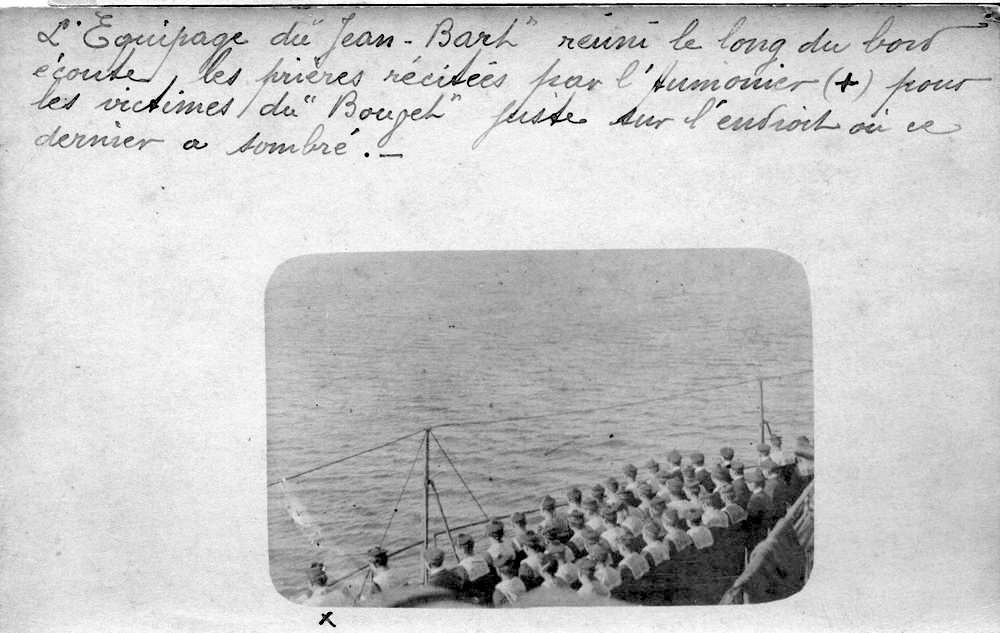 L'Equipage du "Jean-Bart" réuni le long du bord
écoute, les prières récitées par l'Aumonier (+) pour
les victimes du "Bouvet" juste sur l'endroit où ce
dernier a sombré. _
x